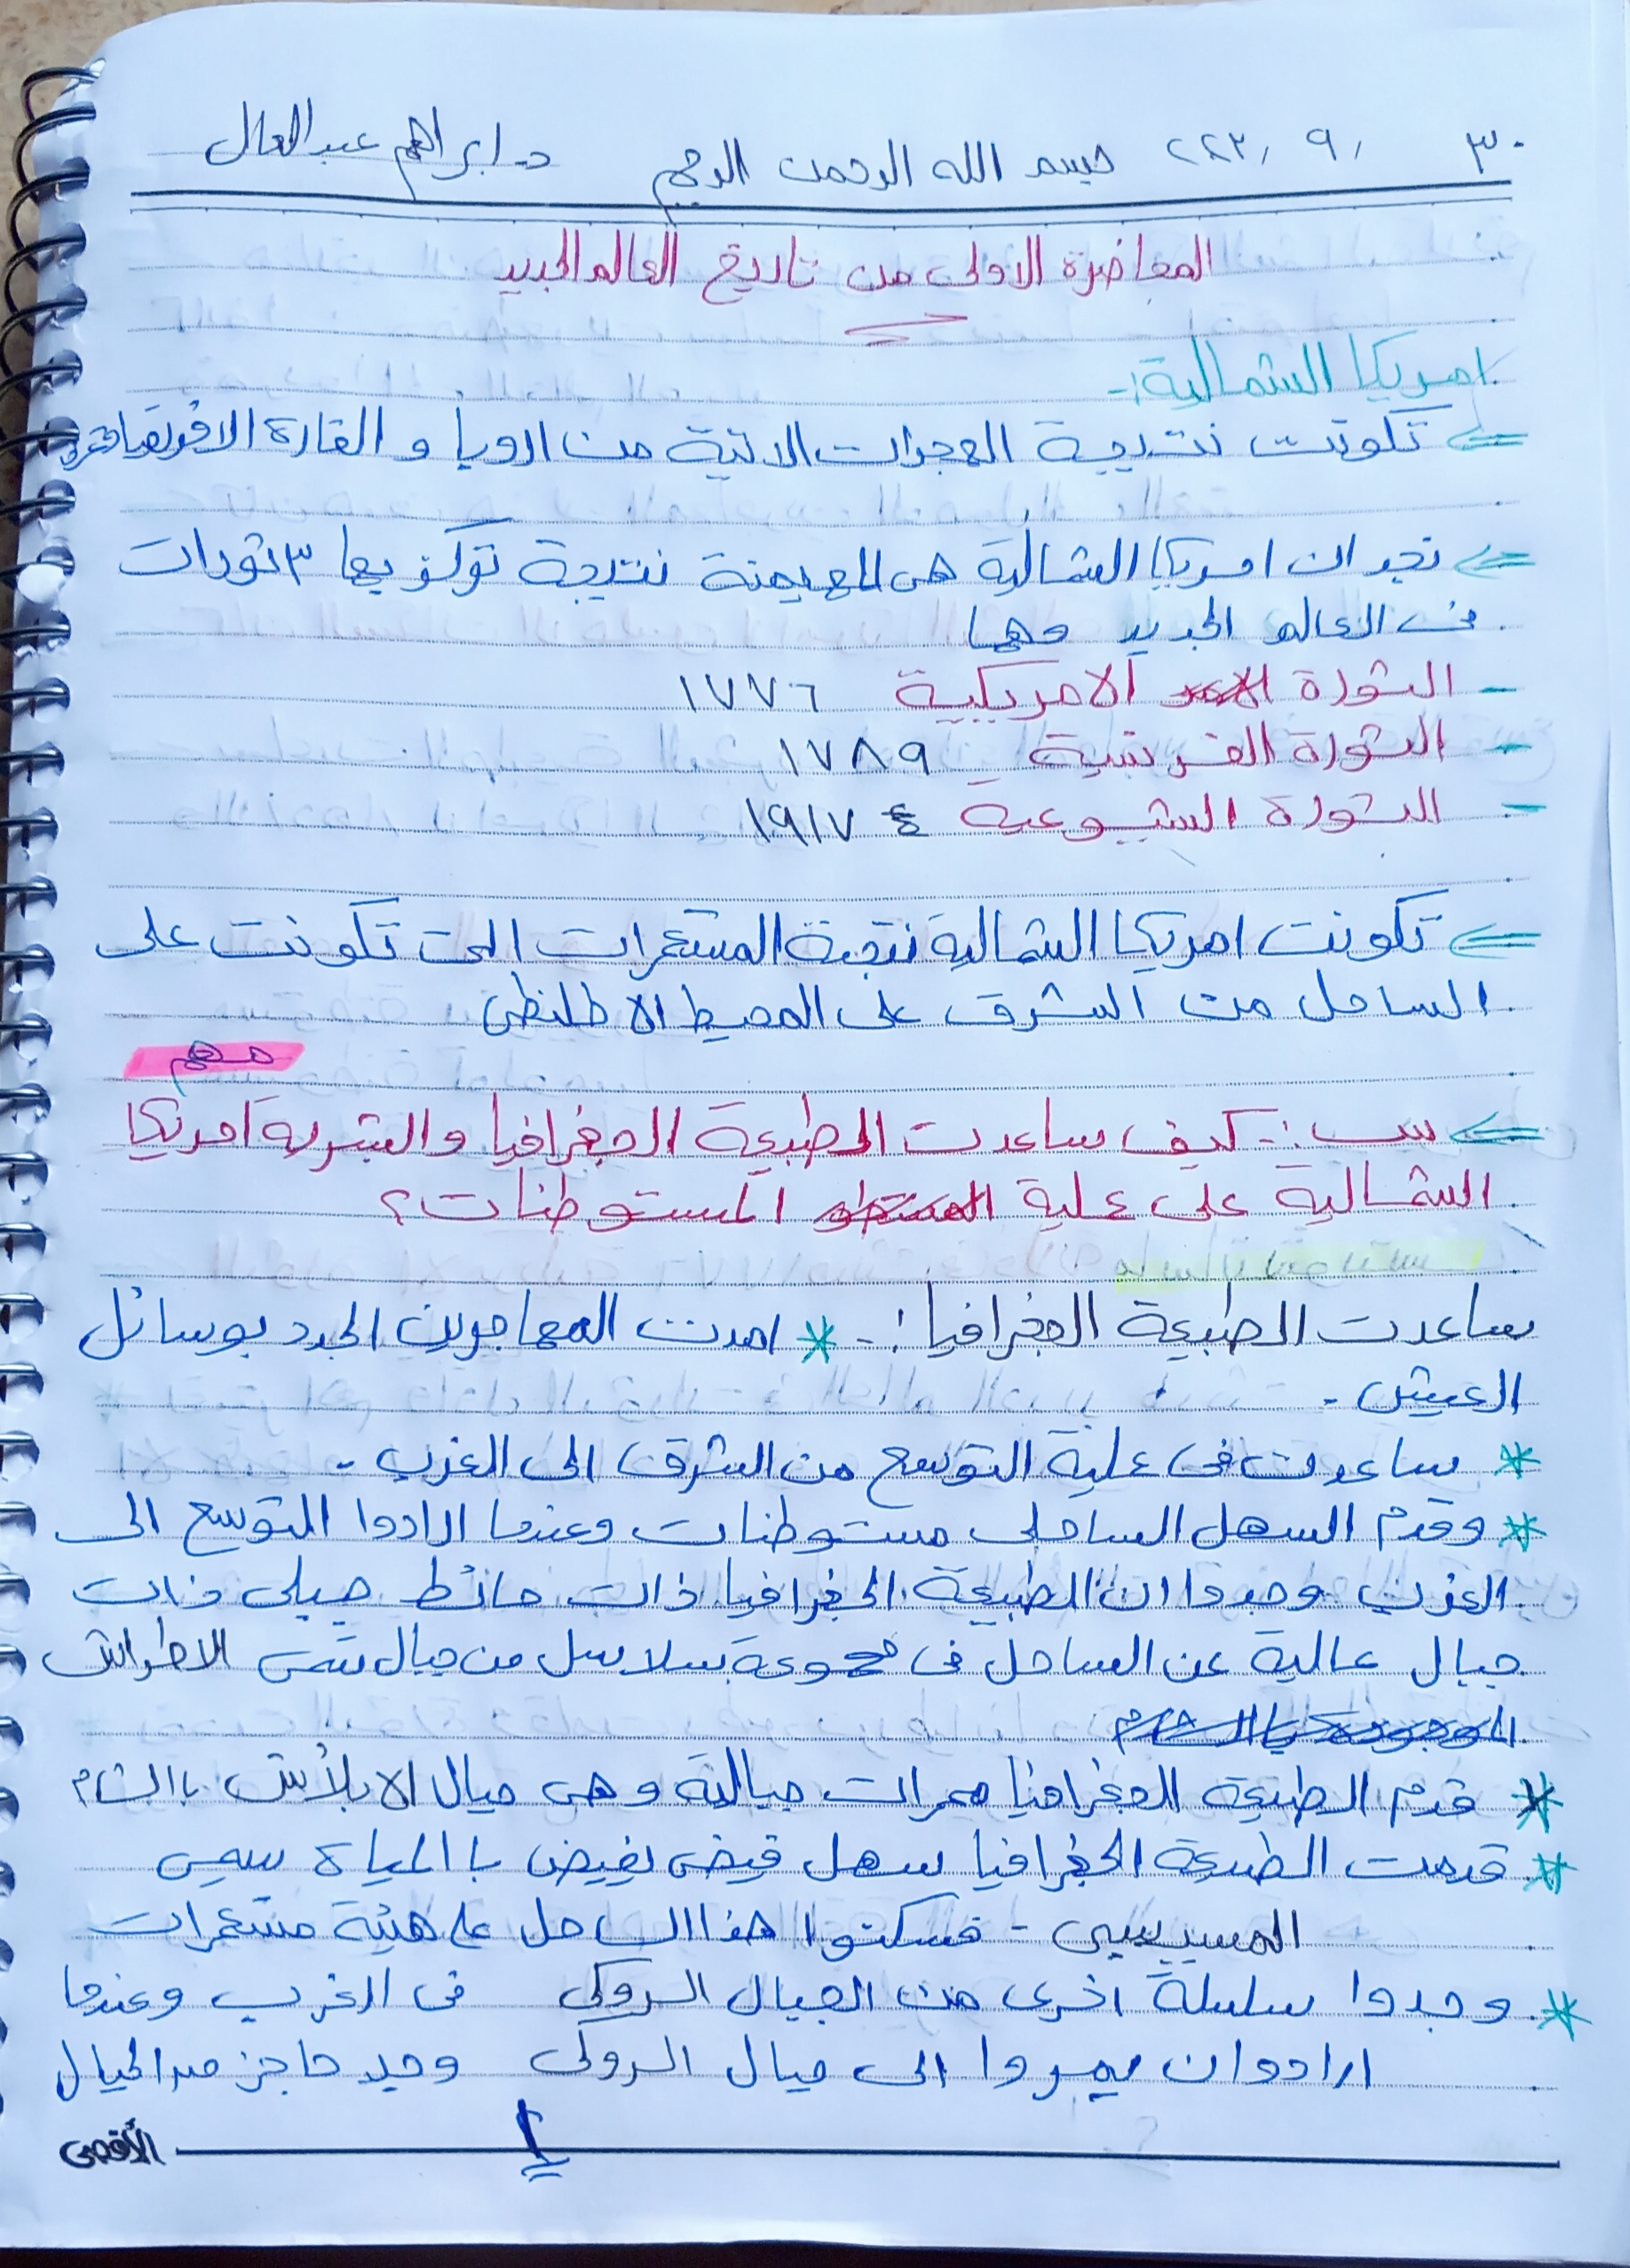 ٣٠ / ٩ / ٢٠٢٣ بسم الله الرحمن الرحيم د. ابراهيم عبدالعال
المحاضرة الاولى من تاريخ العالم الجديد
امريكا الشمالية :-
تكونت نتيجة الهجرات الاتية من اروبا و القارة الافريقيا
نجد ان امريكا الشمالية هى المهيمنة نتيجة تركز بها ٣ ثورات
فى العالم الجديد وهما
- الثورة الامريكيية ١٧٧٦
- الثورة الفرنسية ١٧٨٩
- الثورة الشيوعية ١٩١٧
تكونت امريكا الشمالية نتيجة المستعمرات التى تكونت على
الساحل من الشرق على المحيط الاطلنطى
مهم
س :- كيف ساعدت الطبيعة الجغرافيا والبشرية امريكا
الشمالية على عملية المستوطنات ؟
ساعدت الطبيعة الجغرافيا :- * امدت المهاجرين الجدد بوسائل
العيش .
* ساعدت فى عملية التوسع من الشرق الى الغرب -
* وقدم السهل الساحلى مستوطنات وعندما ارادوا التوسع الى
الغرب وجدوا ان الطبيعة الجغرافيا ذات حائط جبلى ذات
جبال عالية عن الساحل فى مجموعة سلاسل من جبال تسمى
* قدم الطبيعة الجغرافيا ممرات جبالية وهى جبال الابلأتش
* قدمت الطبيعة الجغرافيا سهل فيضى يفيض با المياة يسمى
المسيسبى - فسكنوا هذا الساحل على هئية مستعمرات
* وجدوا سلسلة اخرى من الجبال الروكى فى الغرب وعندما
ارادوا ان يمروا الى جبال الروكى وجد حاجز من الجبال
١
الأقصى